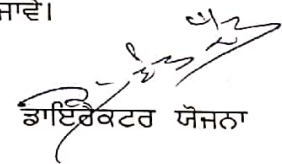 ਜਾਵੇ।
ਡਾਇਰੈਕਟਰ ਯੋਜਨਾ